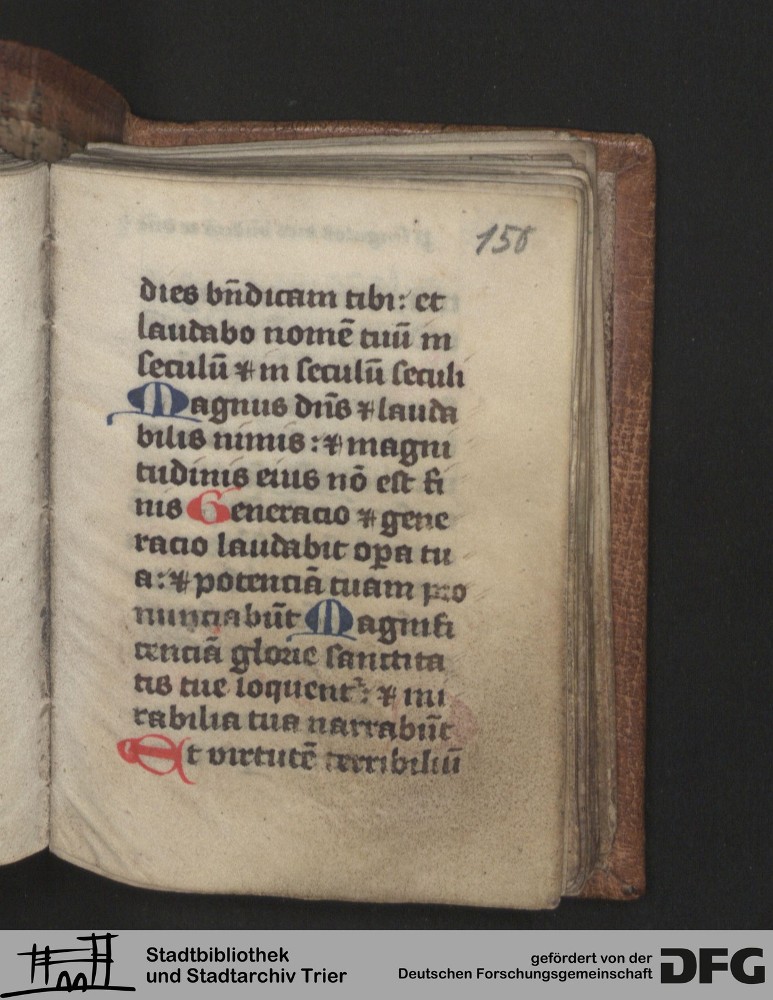 150
dies bn̄dicam tibi: et
laudabo nomē tuū in
seculū ⁊ in seculū seculi
Magnus dn̄s ⁊ lauda
bilis nimis: ⁊ magni
tudinis eius nō est fi
nis Generacio ⁊ gene
racio laudabit oꝑa tu
a: ⁊ potenciā tuam pro
nunciabūt Magnifi
cenciā glorie sanctita
tis tue loquent᷑: ⁊ mi
rabilia tua narrabūt
Et virtutē terribiliū
Stadtbibliothek
und Stadtarchiv Trier
gefördert von der
Deutschen Forschungsgemeinschaft
DFG